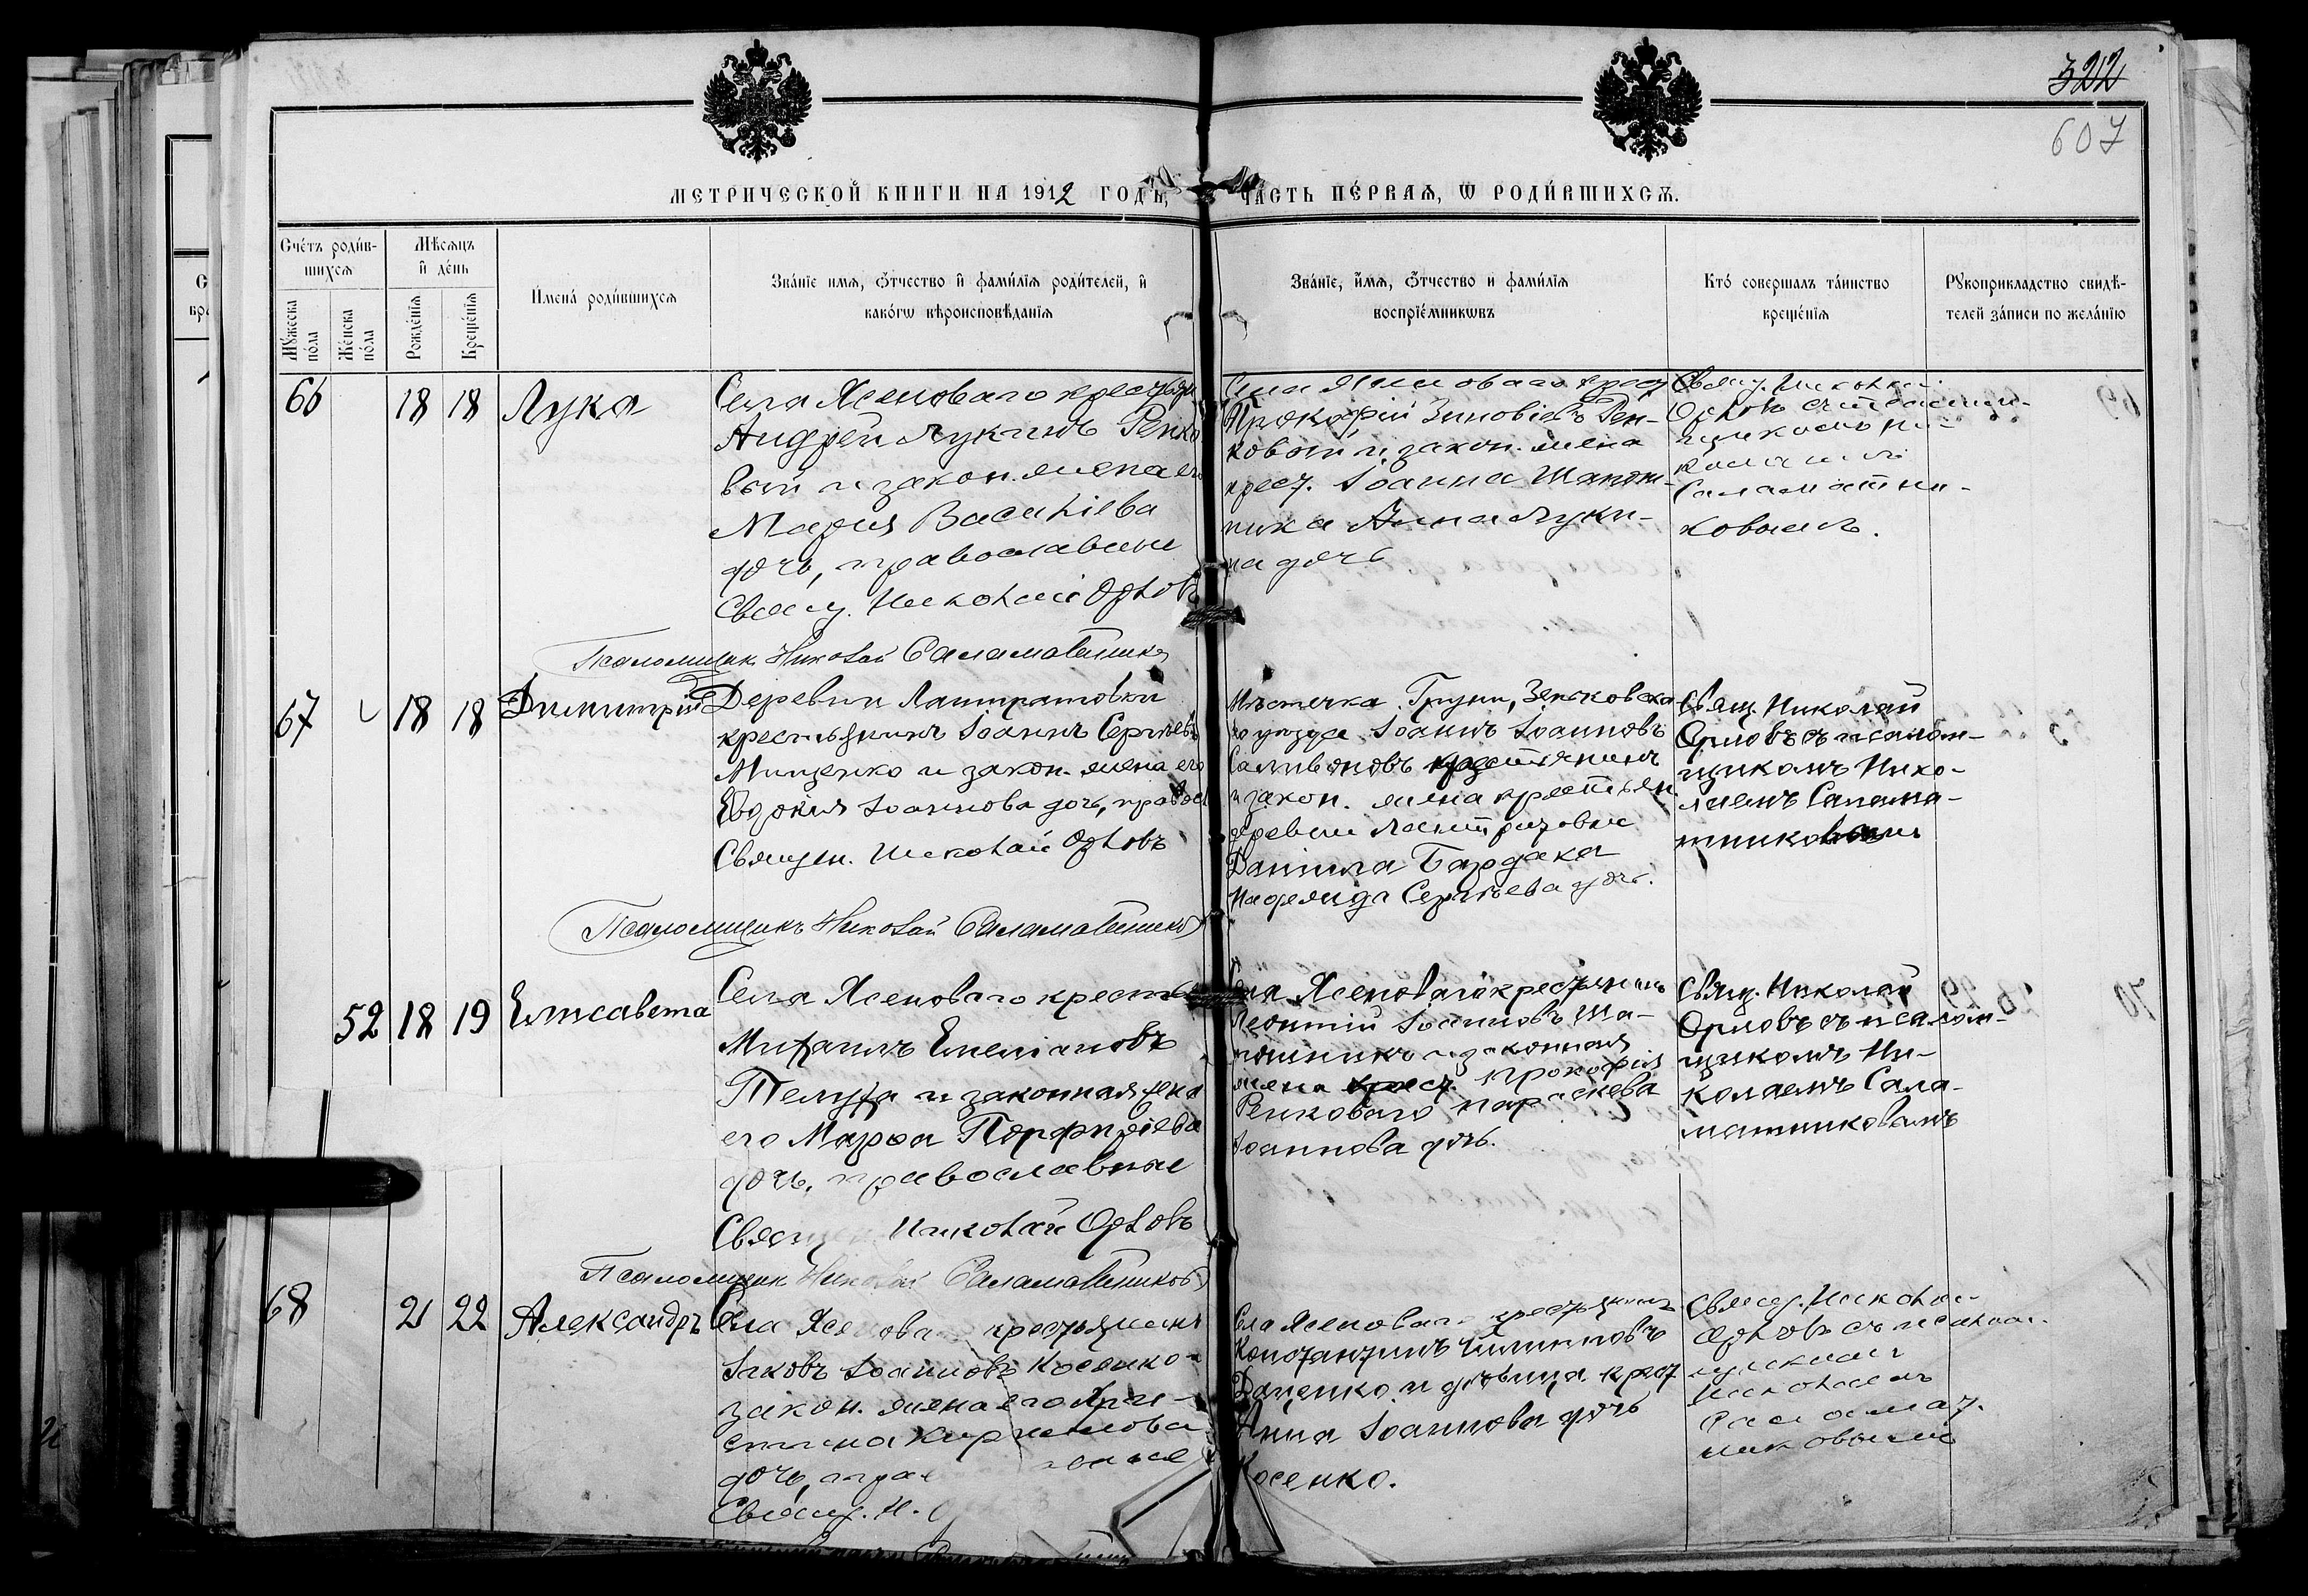 322
607
МЕТРИЧЕСКОЙ КНИГИ НА 1912 ГОДЪ,
ЧАСТЬ ПЕ́РВАЯ, Ѡ РОДИ́ВШИХСѦ.
Сче́тъ роди́в-
шихсѧ
Мꙋ́жеска по́ла
Же́нска по́ла
Мѣ́сѧцъ
и҆ де́нь
Рожде́нїѧ
Креще́нїѧ
И҆мена́ роди́вшихсѧ
Зва́нїе имѧ, ѻ҆́тчество и҆ фами́лїѧ роди́телей, и҆
како́гѡ вѣроисповѣ́данїѧ
Зва́нїе, и҆́мѧ, ѻ҆́тчество и фами́лїѧ
воспрїе́мникѡвъ
Кто́ совершалъ та́инство
креще́нїѧ
Рꙋкоприкладство свидѣ́-
телей за́писи по жела́нїю
66 18 18 Лука
Села Ясеноваго крестьян
Андрей Лукинъ Ренко
вый и закон. жена его
Марія Василіева
дочь, православные
Свящ. Николай Орловъ
Псаломщикъ Николай Саламатниковъ
Села Ясеноваго крест
Прокофій Зиновіевъ Рен-
ковый и закон. жена
крест. Іоанна Шапош-
ника Анна Луки-
на дочь
Свящ. Николай
Орловъ съ псалом-
щикомъ Ни-
колаемъ
Саламатни-
ковымъ.
67 18 18 Димитрій
Деревни Лантратовки
крестьянинъ Іоаннъ Сергѣевъ
Мищенко и закон. жена его
Евдокія Іоаннова дочь, правосл
Священ. Николай Орловъ
Псаломщикъ Николай Саламатниковъ
Мѣстечка Груни, Зеньковска
го уѣзда Іоаннъ Іоанновъ
Саливоновъ крестьянинъ
и закон. жена крестьян.
деревни Лантратовки
Даніила Бардака
Надежда Сергѣева дочь.
Свящ. Николай
Орловъ съ псалом-
щикомъ Нико-
лаемъ Салама-
тниковымъ
52 18 19 Елисавета
Села Ясеноваго крестья
Михаилъ Емеліановъ
Телуха и законная жена
его Марѳа Порфиріева
дочь, православные
Священ Николай Орловъ
Псаломщикъ Николай Саламатниковъ
Села Ясеноваго крестьянинъ
Леонтій Іоанновъ Ша-
пошникъ и законная
жена крест. Прокофія
Ренковаго Параскева
Іоаннова дочь.
Свящ. Николай
Орловъ съ псалом-
щикомъ Ни-
колаемъ Сала-
матниковымъ
68 21 22 Александръ
Села Ясенова крестьянинъ
Іаковъ Іоанновъ Косенко
закон. жена его Хри-
стина Кириллова
дочь, пра
Свящ. Н.
Села Ясеноваго крестьянинъ
Константинъ
Даценко и дѣвица крест
Анна Іоаннова дочь
Косенко.
Свящ. Николай
Орловъ съ псалом-
щикомъ
Николаемъ
Саламат.
никовымъ